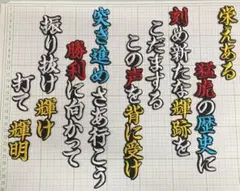 栄えある
猛虎の歴史に
刻め新たな輝跡を
こだまする
この声を背に受け
突き進めさあ行こう
勝利に向かって
振り抜け輝け
打て輝明